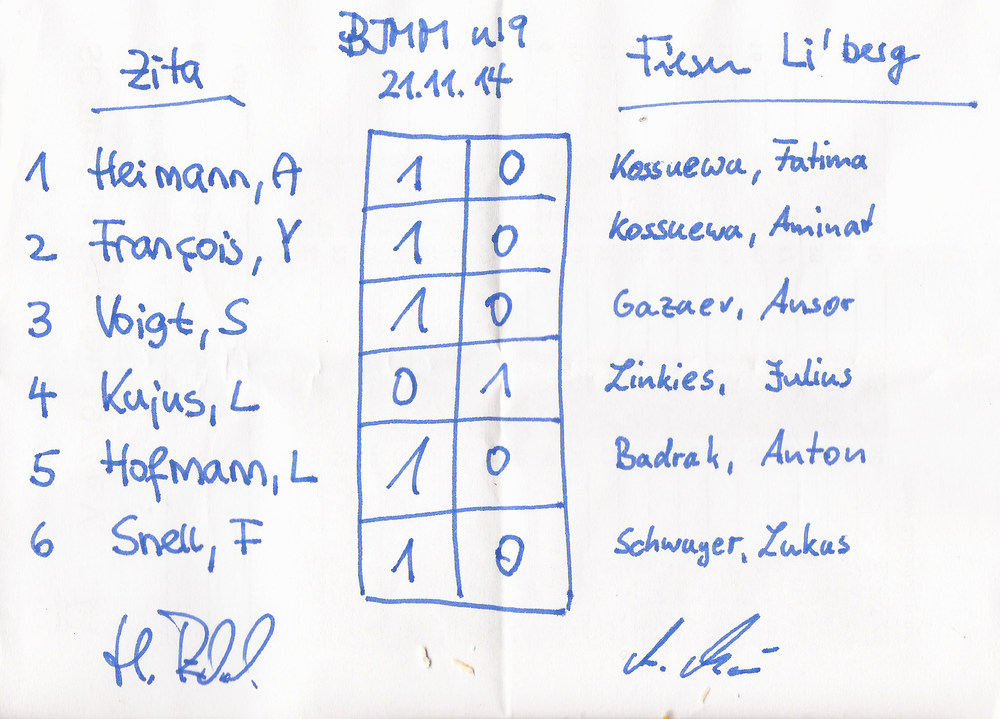 BJMM u19
Zita 21.11.14 Friesen Li'berg
1 Heimann, A 1 0 Kossuewa, Fatima
2 François, Y 1 0 Kossuewa, Aminat
3 Voigt, S 1 0 Gazaev, Ansor
4 Kujus, L 0 1 Linkies, Julius
5 Hofmann, L 1 0 Badrak, Anton
6 Snell, F 1 0 Schwager, Lukas
H.